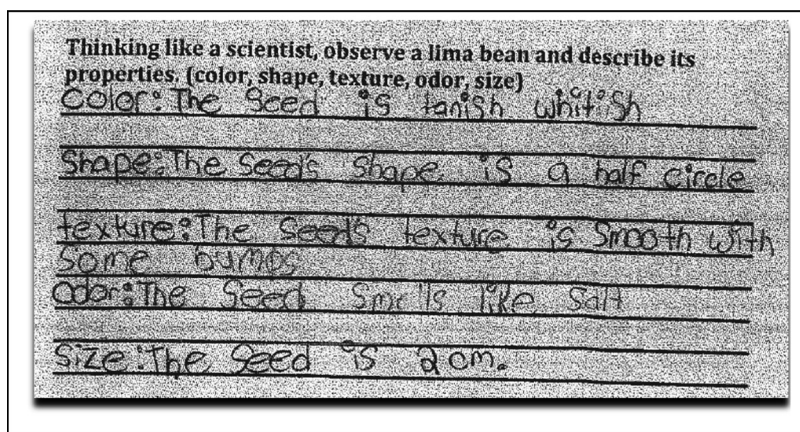 Thinking like a scientist, observe a lima bean and describe its
properties. (color, shape, texture, odor, size)
Color: The Seed is tanish whitish
Shape: The Seed's shape is a half circle
texture: The Seed's texture is Smooth with
some bumps
Odor: The Seed Smells like Salt
Size: The Seed is 2 cm.